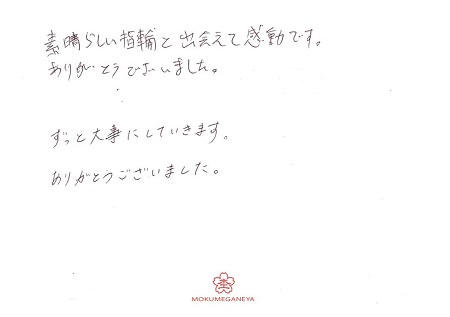 素晴らしい指輪と出会えて感動です。
ありがとうございました。
ずっと大事にしていきます。
ありがとうございました。
MOKUMEGANEYA